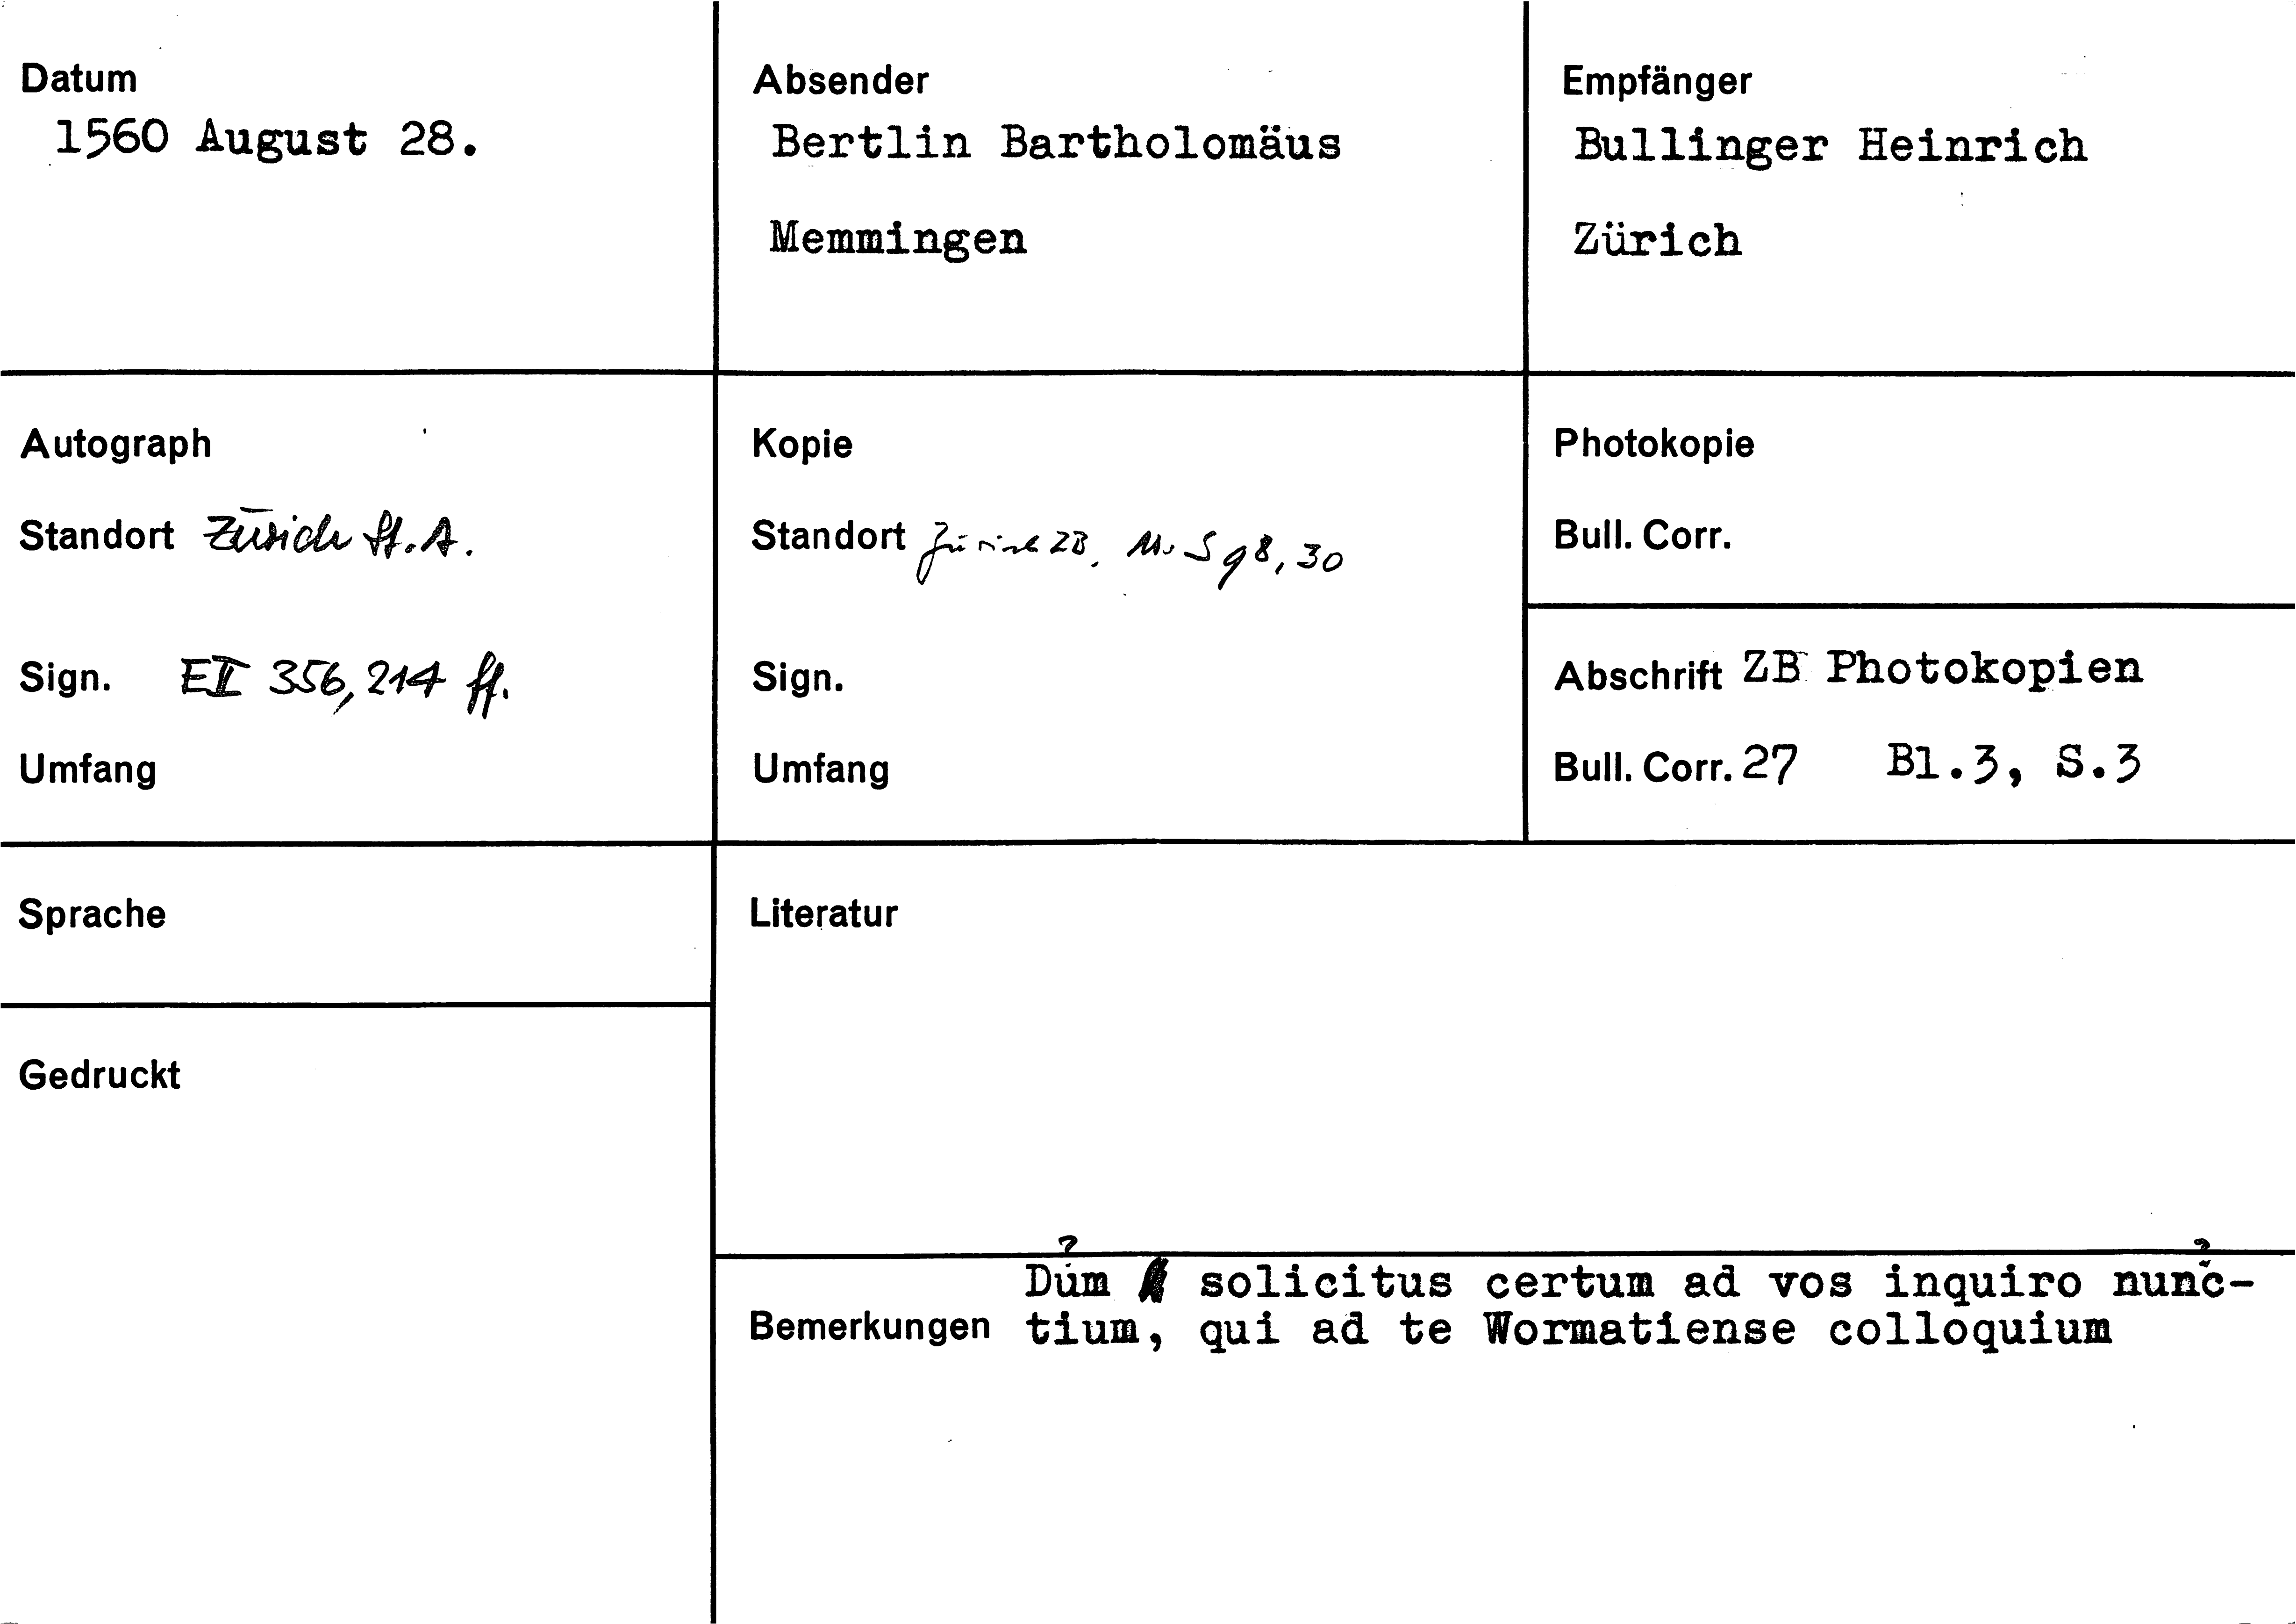 Datum
1560 August 28.
Absender
Bertlin Bartholomäus
Memmingen
Empfänger
Bullinger Heinrich
Zürich
Autograph
Standort Zürich St. A.
Sign. E II 356, 214 ff.
Umfang
Kopie
Standort Zürich ZB, Ms S 98, 30
Sign.
Umfang
Photokopie
Bull. Corr.
Abschrift ZB Photokopien
Bull. Corr. 27 Bl.3, S.3
Sprache
Gedruckt
Literatur
Bemerkungen
? ?
Dum solicitus certum ad vos inquiro nunc-
tium, qui ad te Wormatiense colloquium